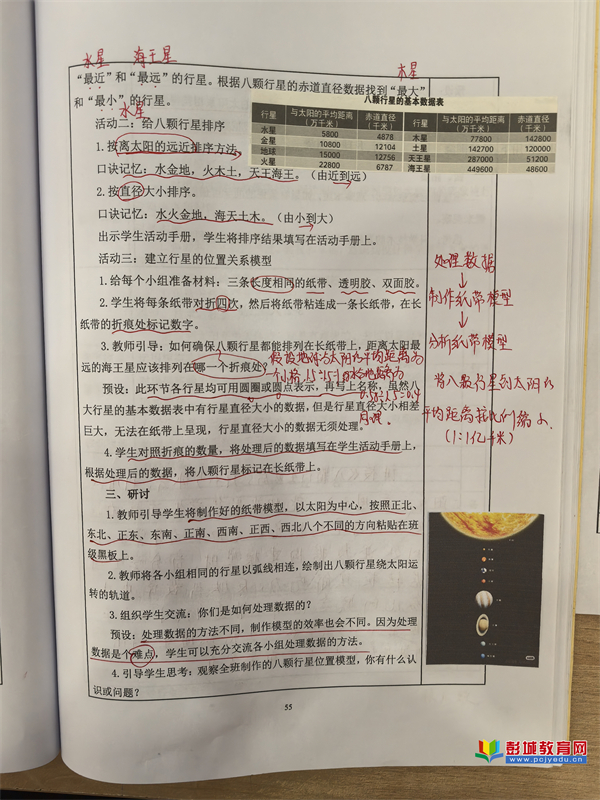 水星 海王星 木星
“最近”和“最远”的行星。根据八颗行星的赤道直径数据找到“最大”
和“最小”的行星。
水星
八颗行星的基本数据表
行星 与太阳的平均距离（万千米） 赤道直径（千米） 行星 与太阳的平均距离（万千米） 赤道直径（千米）
水星 5800 4878 木星 77800 142800
金星 10800 12104 土星 142700 120000
地球 15000 12756 天王星 287000 51200
火星 22800 6787 海王星 449600 48600
活动二：给八颗行星排序
1.按离太阳的远近排序方法。
口诀记忆：水金地，火木土，天王海王。（由近到远）
2.按直径大小排序。
口诀记忆：水火金地，海天土木。（由小到大）
出示学生活动手册，学生将排序结果填写在活动手册上。
活动三：建立行星的位置关系模型
1.给每个小组准备材料：三条长度相同的纸带、透明胶、双面胶。
2.学生将每条纸带对折四次，然后将纸带粘连成一条长纸带，在长
纸带的折痕处标记数字。
3.教师引导：如何确保八颗行星都能排列在长纸带上，距离太阳最
远的海王星应该排列在哪一个折痕处？
假设地球与太阳的平均距离为
一个格，1.5÷1.5=1
预设：此环节各行星均可用圆圈或圆点表示，再写上名称，虽然八
大行星的基本数据表中有行星直径大小的数据，但是行星直径大小相差
巨大，无法在纸带上呈现，行星直径大小的数据无须处理。
4.学生对照折痕的数量，将处理后的数据填写在学生活动手册上，
根据处理后的数据，将八颗行星标记在长纸带上。
处理数据
制作纸带模型
分析纸带模型
将八颗行星到太阳的
平均距离按比例缩小
（1:1亿千米）
三、研讨
1.教师引导学生将制作好的纸带模型，以太阳为中心，按照正北、
东北、正东、东南、正南、西南、正西、西北八个不同的方向粘贴在班
级黑板上。
2.教师将各小组相同的行星以弧线相连，绘制出八颗行星绕太阳运
转的轨道。
3.组织学生交流：你们是如何处理数据的？
预设：处理数据的方法不同，制作模型的效率也会不同。因为处理
数据是个难点，学生可以充分交流各小组处理数据的方法。
4.引导学生思考：观察全班制作的八颗行星位置模型，你有什么认
识或问题？
55
彭城教育网
www.pcjyedu.cn